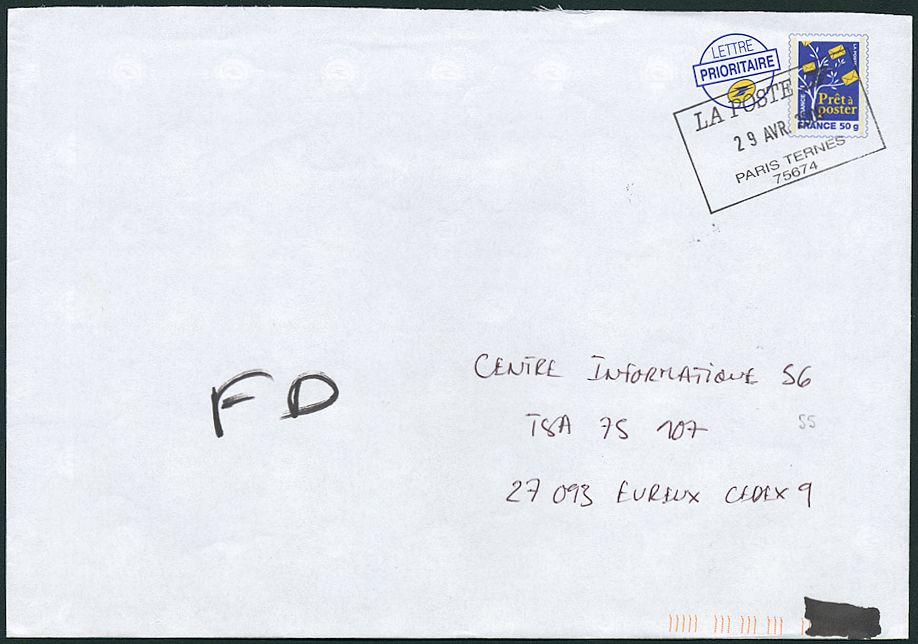 LETTRE
PRIORITAIRE
LA POSTE
Prêt à
poster
FRANCE 50 g
LA POSTE
29 AVR.
PARIS TERNES
75674
FD
CENTRE INFORMATIQUE S6
TSA 75 107
SS
27 093 EVREUX CEDEX 9